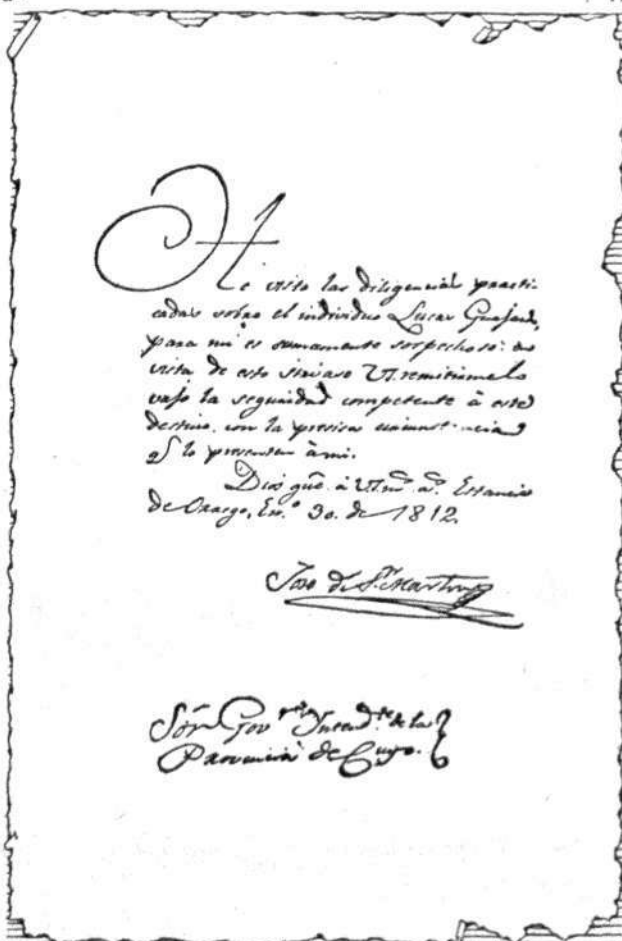 He visto las diligencias practi-
cadas sobre el individuo Lucas
para mi es sumamente sospechoso: en
vista de esto sirvase VS. remitirmelo
vajo la seguridad competente à este
destino, con la precisa circunstancia
qe lo presenten à mi.
Dios güe. à VS. ms. as. Estancia
de Enº. 30. de 1812.
José de Sn. Martin
Sór Govor Intendte. de la
Provincia de Cuyo.